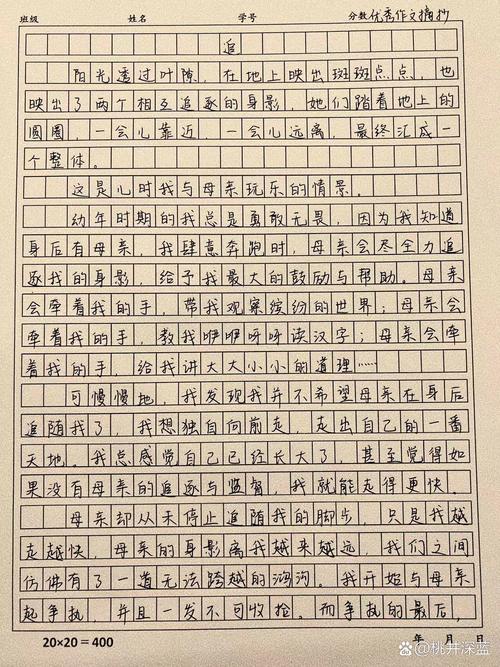 班级 姓名 学号 分数 优秀作文摘抄
追
阳光透过叶隙，在地上映出斑斑点点，也
映出了两个相互追逐的身影，她们踏着地上的
圆圈，一会儿靠近，一会儿远离，最终汇成一
个整体。
这是儿时我与母亲玩乐的情景。
幼年时期的我总是勇敢无畏，因为我知道
身后有母亲，我肆意奔跑时，母亲会尽全力追
逐我的身影，给予我最大的鼓励与帮助。母亲
会牵着我的手，带我观察缤纷的世界；母亲会
牵着我的手，教我咿咿呀呀读汉字；母亲会牵
着我的手，给我讲大大小小的道理……
可慢慢地，我发现我并不希望母亲在身后
追随我了，我想独自向前走，走出自己的一番
天地。我总感觉自己已经长大了，甚至觉得如
果没有母亲的追逐与监督，我就能走得更快。
母亲却从未停止追随我的脚步，只是我越
走越快，母亲的身影离我越来越远，我们之间
仿佛有了一道无法跨越的沟沟。我开始与母亲
起争执，并且一发不可收拾。而争执的最后，
20×20=400 年 月 日
百家号/桃井深蓝